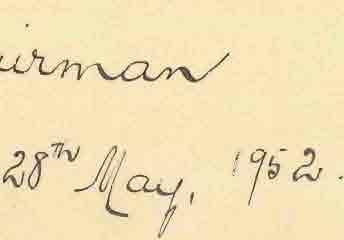 airman
28TH May, 1952.